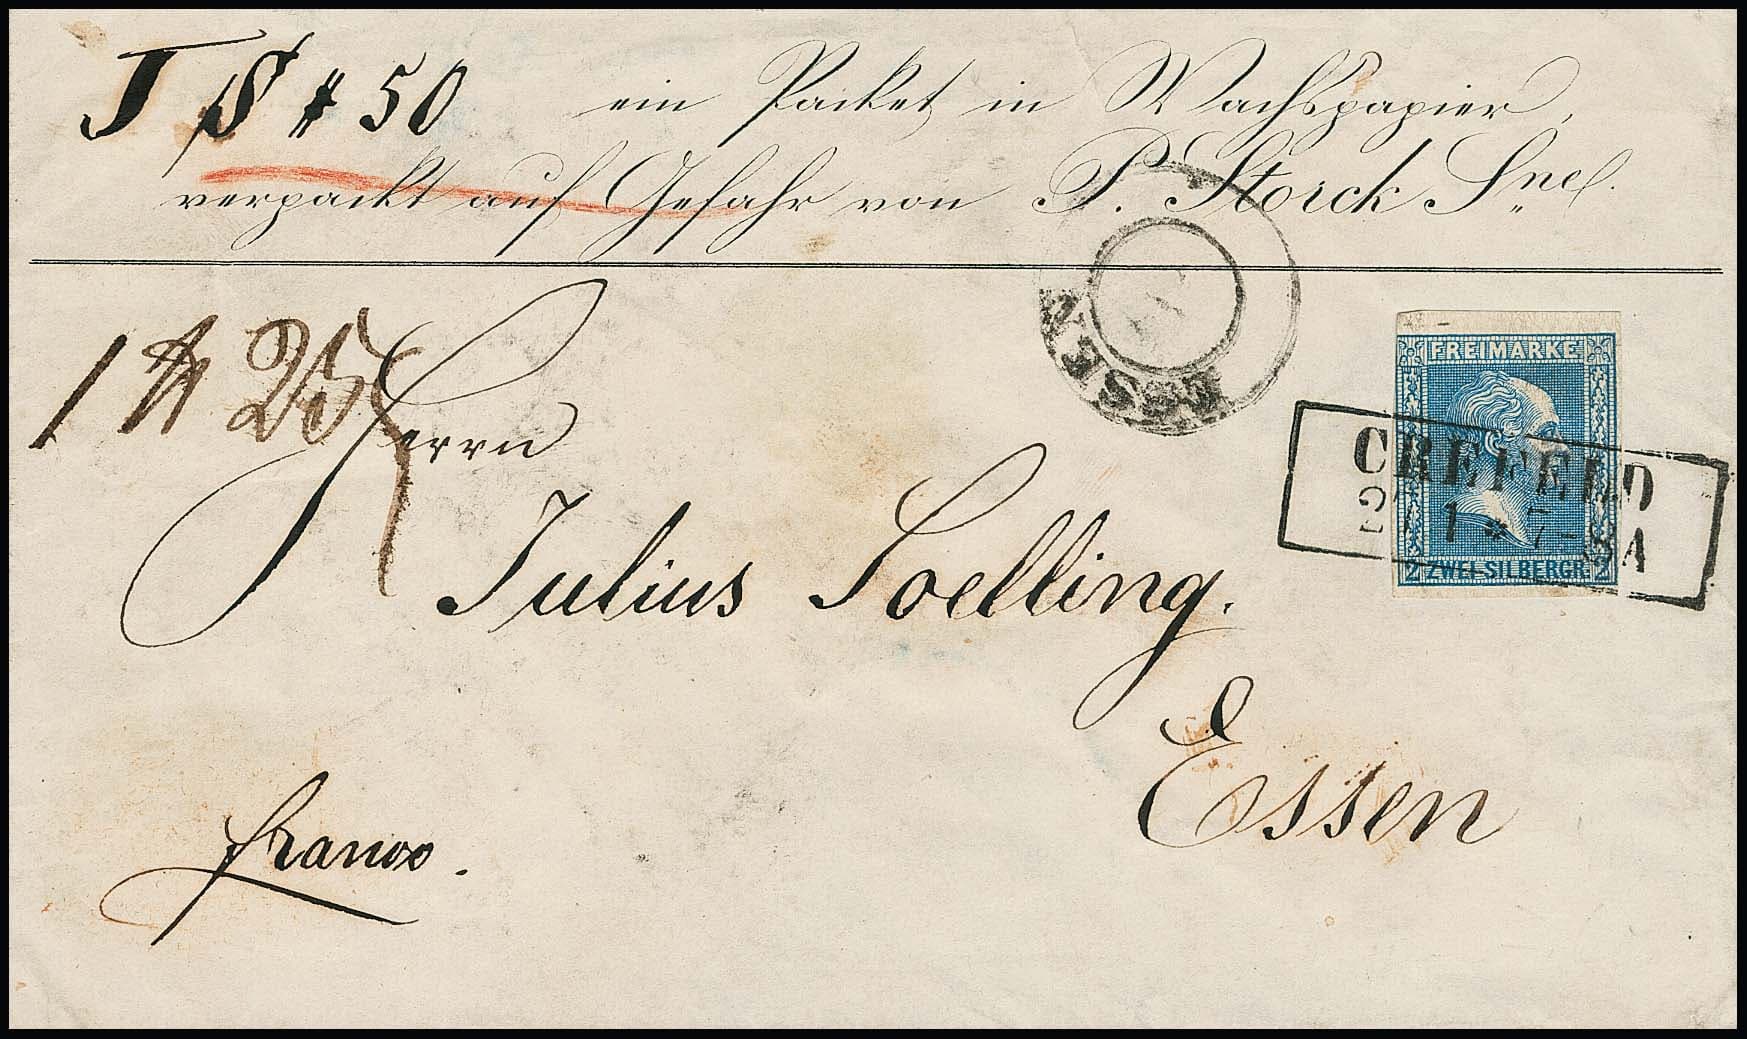 J S # 50 ein Packet in Wachspapier,
verpackt auf Gefahr von P. Storck Sne.
ESSEN
1 25
Herrn
FREIMARKE
CREFELD
1 * 7-8 A
2 ZWEI-SILBERGR. 2
Julius Soelling.
Essen
franco.